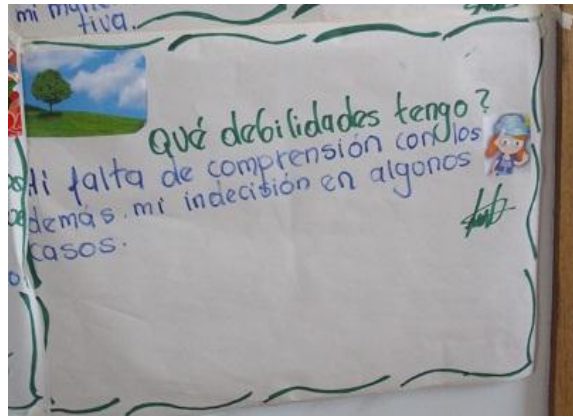 tiva.
Qué debilidades tengo?
Mi falta de comprensión con los
demás. mi indecisión en algunos
casos.